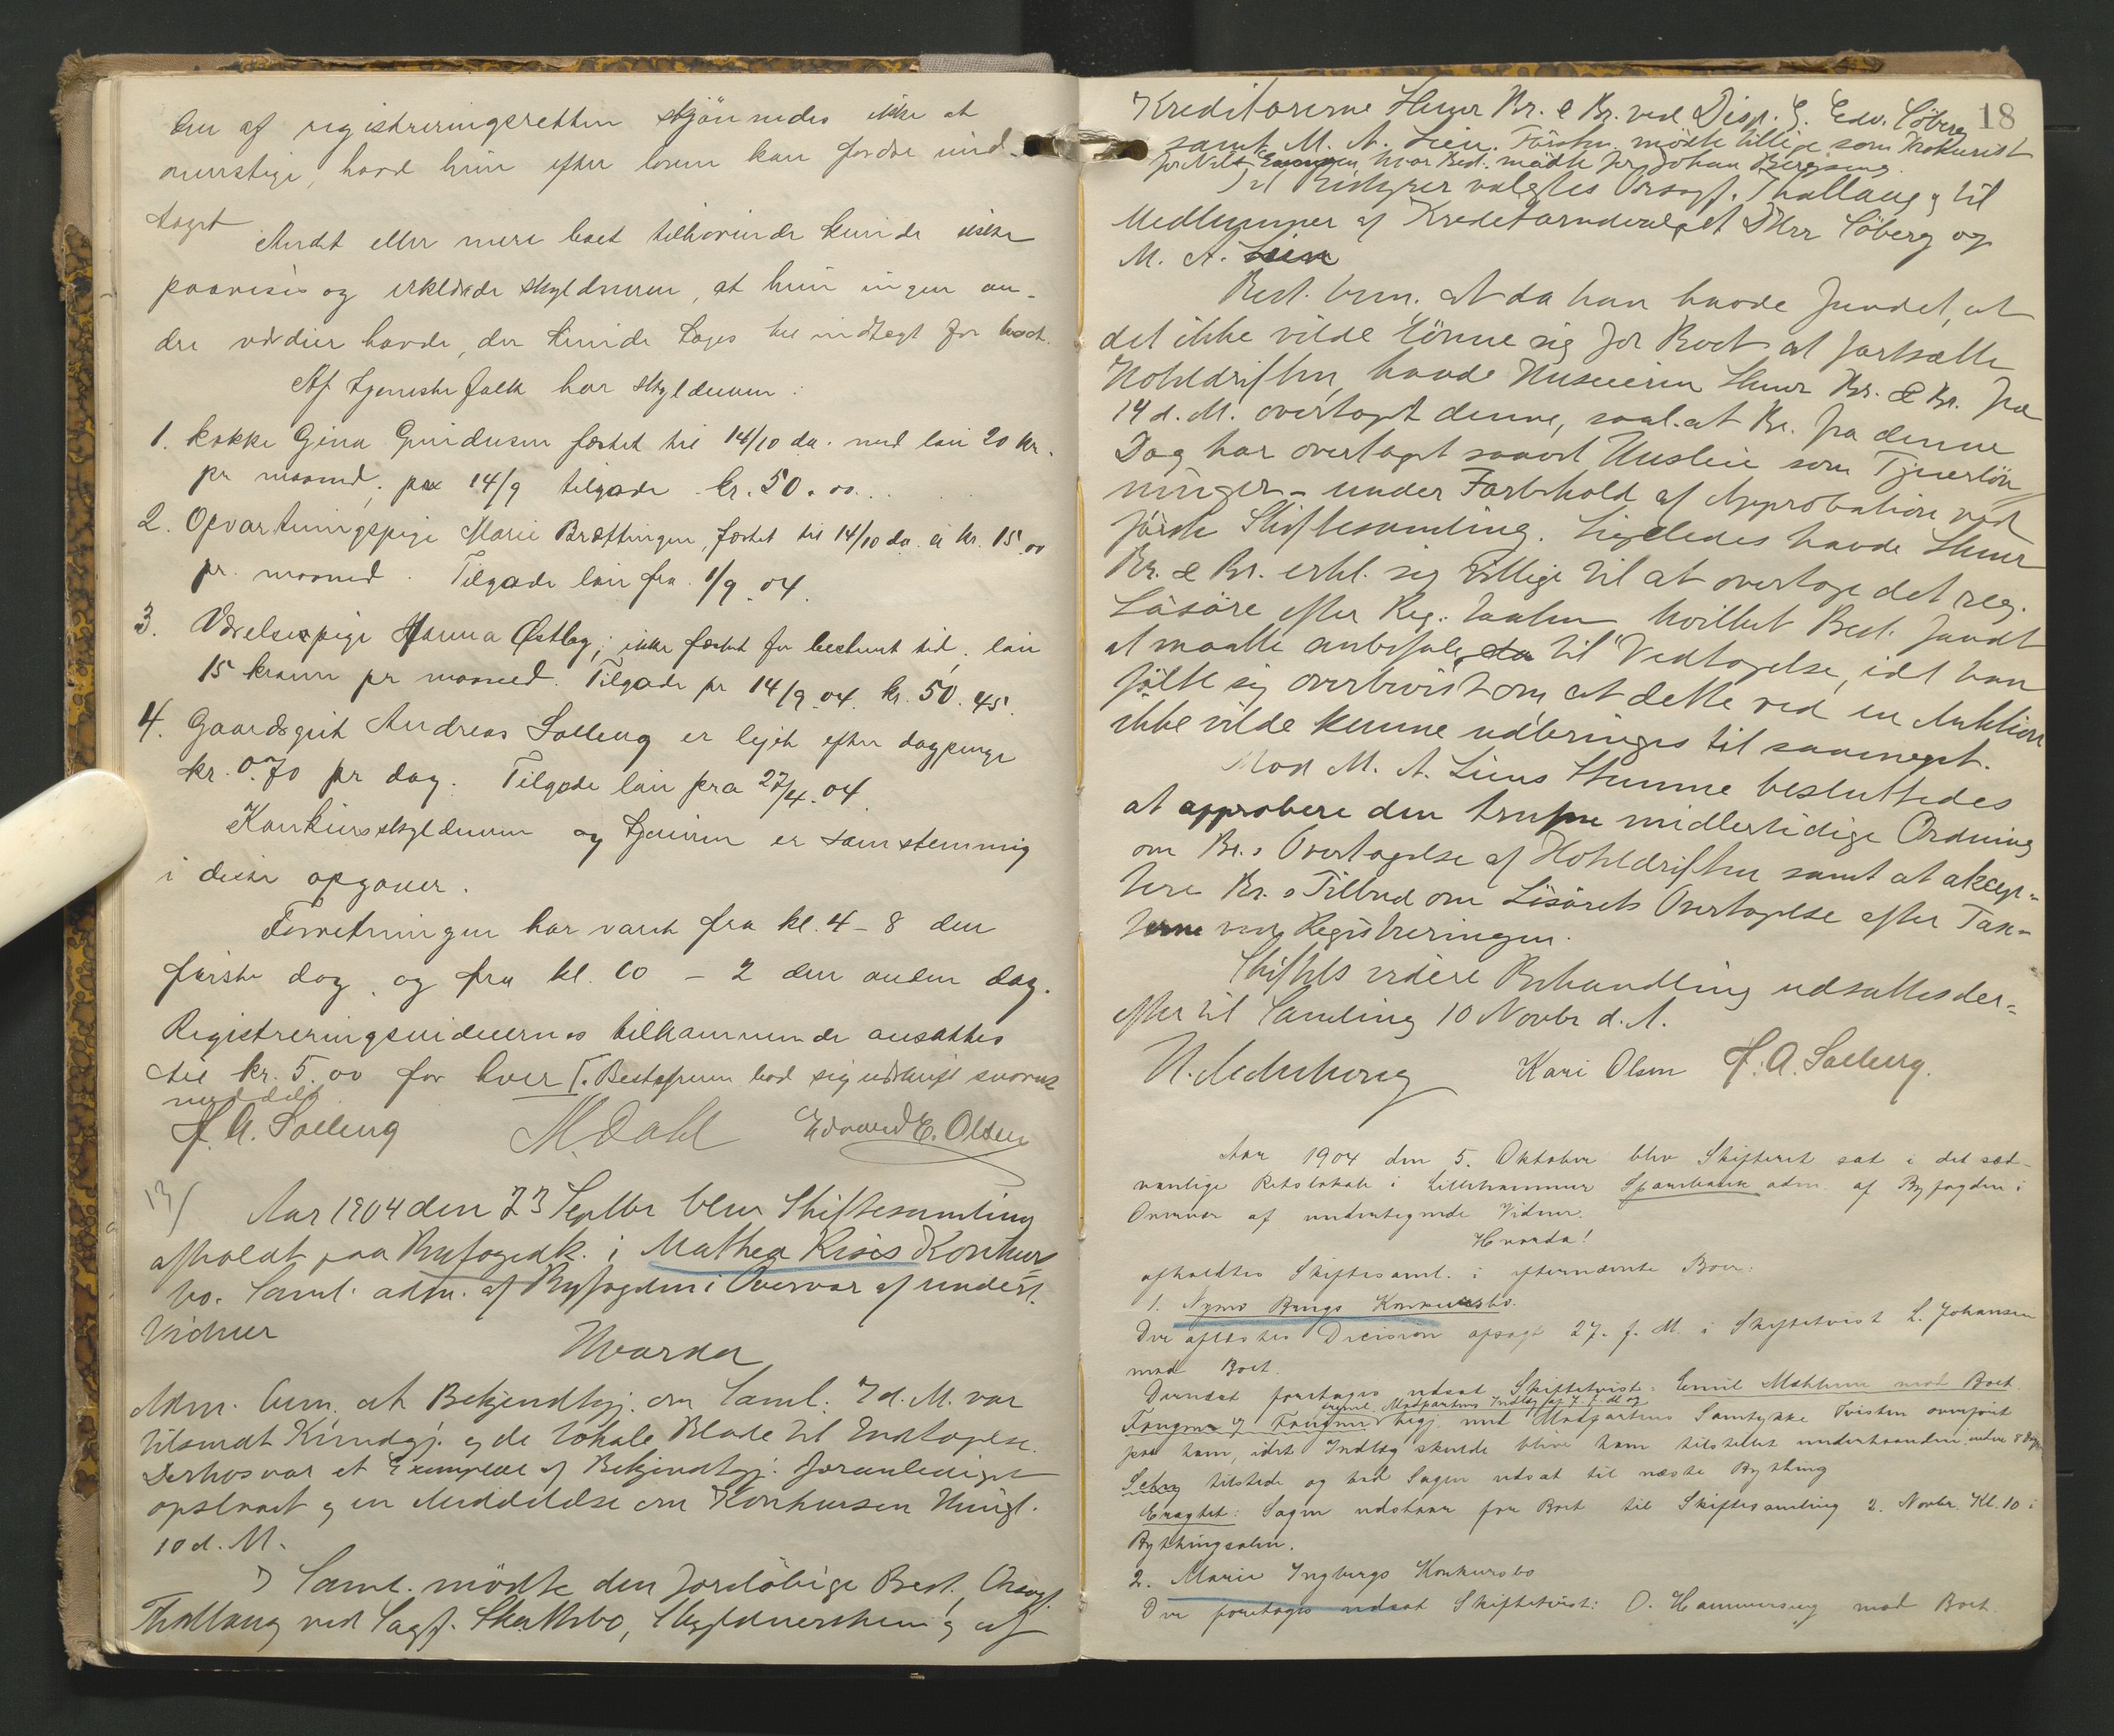 af registreringsretten skjönnedes ikke at
havd hun efter loven kan fordre und-
taget
Andt eller mere boet tilhörende kunde ikke
paavises og erklærede skyldneren, at hun ingen an-
dre værdier havde, der kunde tages til indtægt for boet.
Af tjenestefolk har skyldneren:
1. kokke Gina Gundersen fæstet til 14/10 da. med løn 20 kr.
pr maaned; pr 14/9 tilgode kr. 50.00.
2. Opvartningspige Marie Brættingen, fæstet til 14/10 da. à kr. 15.00
pr. maaned. Tilgode løn fra 1/9.04.
3. Værelsespige Anna Østlag; ikke fæstet for bestemt tid, løn
15 kroner pr maaned. Tilgode pr 14/9.04 kr. 50.45.
4. Gaardsgut Andreas Solleng er lejet efter dagpenge
kr. 0.70 pr dag. Tilgode løn fra 27/4.04.
Konkursskyldneren og tjenerne er samstemmig
i disse opgaver.
Forretningen har varet fra kl. 4 – 8 den
første dag, og fra kl. 10 – 2 den anden dag.
Registreringsvidnernes tilkommende ansattes
til kr. 5.00 for hver. Bestyreren bad sig udskrift snarest
meddelt.
H. A. Solleng M. Dahl Edvard E. Olsen
13/
Aar 1904 den 23 Septbr blev Skiftesamling
afholdt paa Byfogedk. i Mathea Riises Konkurs
bo. Saml. adm. af Byfogden i Overvær af undert.
Vidner
Hvorda
Adm. bem. at Bekjendtgj. om Saml. 7 d. M. var
tilsendt Kundgj. og de lokale Blade til Indtagelse.
Derhos var et Exemplar af Bekjendtgj. foranlediget
opslaaet og en Meddelelse om Konkursen thingl.
10 d. M.
I Saml. mödte den foreløbige Best, Orsagf.
Thallaug ved Sagf. Skattebo, Skyldnersken og af
18
Kreditorerne Hamar Br. & Br. ved Disp. G. Edv. Söberg
samt M. A. Lien. Förstn. mödte tillige som Prokurist
for Nils hvor Best. mödte for Johan
Til Bestyrer valgtes Orsagf. Thallaug og til
Medlemmer af Kreditorudvalget DHrr Söberg og
M. A. Lien
Best. bem. at da han havde fundet, at
det ikke vilde lönne sig for Boet at fortsætte
Hoteldriften, havde Huseieren Hamar Br. & Br. fra
14 d. M. overtaget denne, saal. at Br. fra denne
Dag har overtaget saavel Husleie som Tjenerlön-
ninger – under Forbehold af Approbation ved
förste Skiftesamling. Ligeledes havde Hamar
Br. & Br. erkl. sig villige til at overtage det reg.
Lösöre efter Reg. taxten hvilket Best. fandt
at maatte anbefale til Vedtagelse, idet han
fölte sig overbevist om, at dette ved en Auktion
ikke vilde kunne udbringes til saameget.
Mod M. A. Liens Stemme besluttedes
at approbere den trufne midlertidige Ordning
om Br.s Overtagelse af Hoteldriften samt at aksep-
tere Br.s Tilbud om Lösörets Overtagelse efter Tax-
terne ved Registreringen.
Skiftets videre Behandling udsattes der-
efter til Samling 10 Novbr d. A.
Kari Olsen H. A. Solleng.
Aar 1904 den 5. Oktober blev Skifteret sat i det sæd-
vanlige Retslokale i Lillehammer Sparebank adm. af Byfogden i
Overvær af undertegnede Vidner.
Hvorda!
afholdtes Skiftesaml. i efternævnte Boer:
1. Nymo Konkursbo.
Der aflæstes Decision afsagt 27. f. M. i Skiftetvist L. Johansen
mod Boet.
Dernæst foretoges udsat Skiftetvist: Emil mod Boet
Modpartens Indlæg af 7. f. M. og
Fougner begj. med Modpartens Samtykke Tvisten overført
paa ham, idet Indlæg skulde blive ham tilstillet underhaanden inden 8 Dage
tilstede og bad Sagen udsat til næste Bything
Eragtet: Sagen udstaar for Boet til Skiftesamling 2. Novbr. Kl. 10 i
Bythingsalen.
2. Marie Ingbergs Konkursbo
Der foretoges udsat Skiftetvist: O. Hammerseng mod Boet